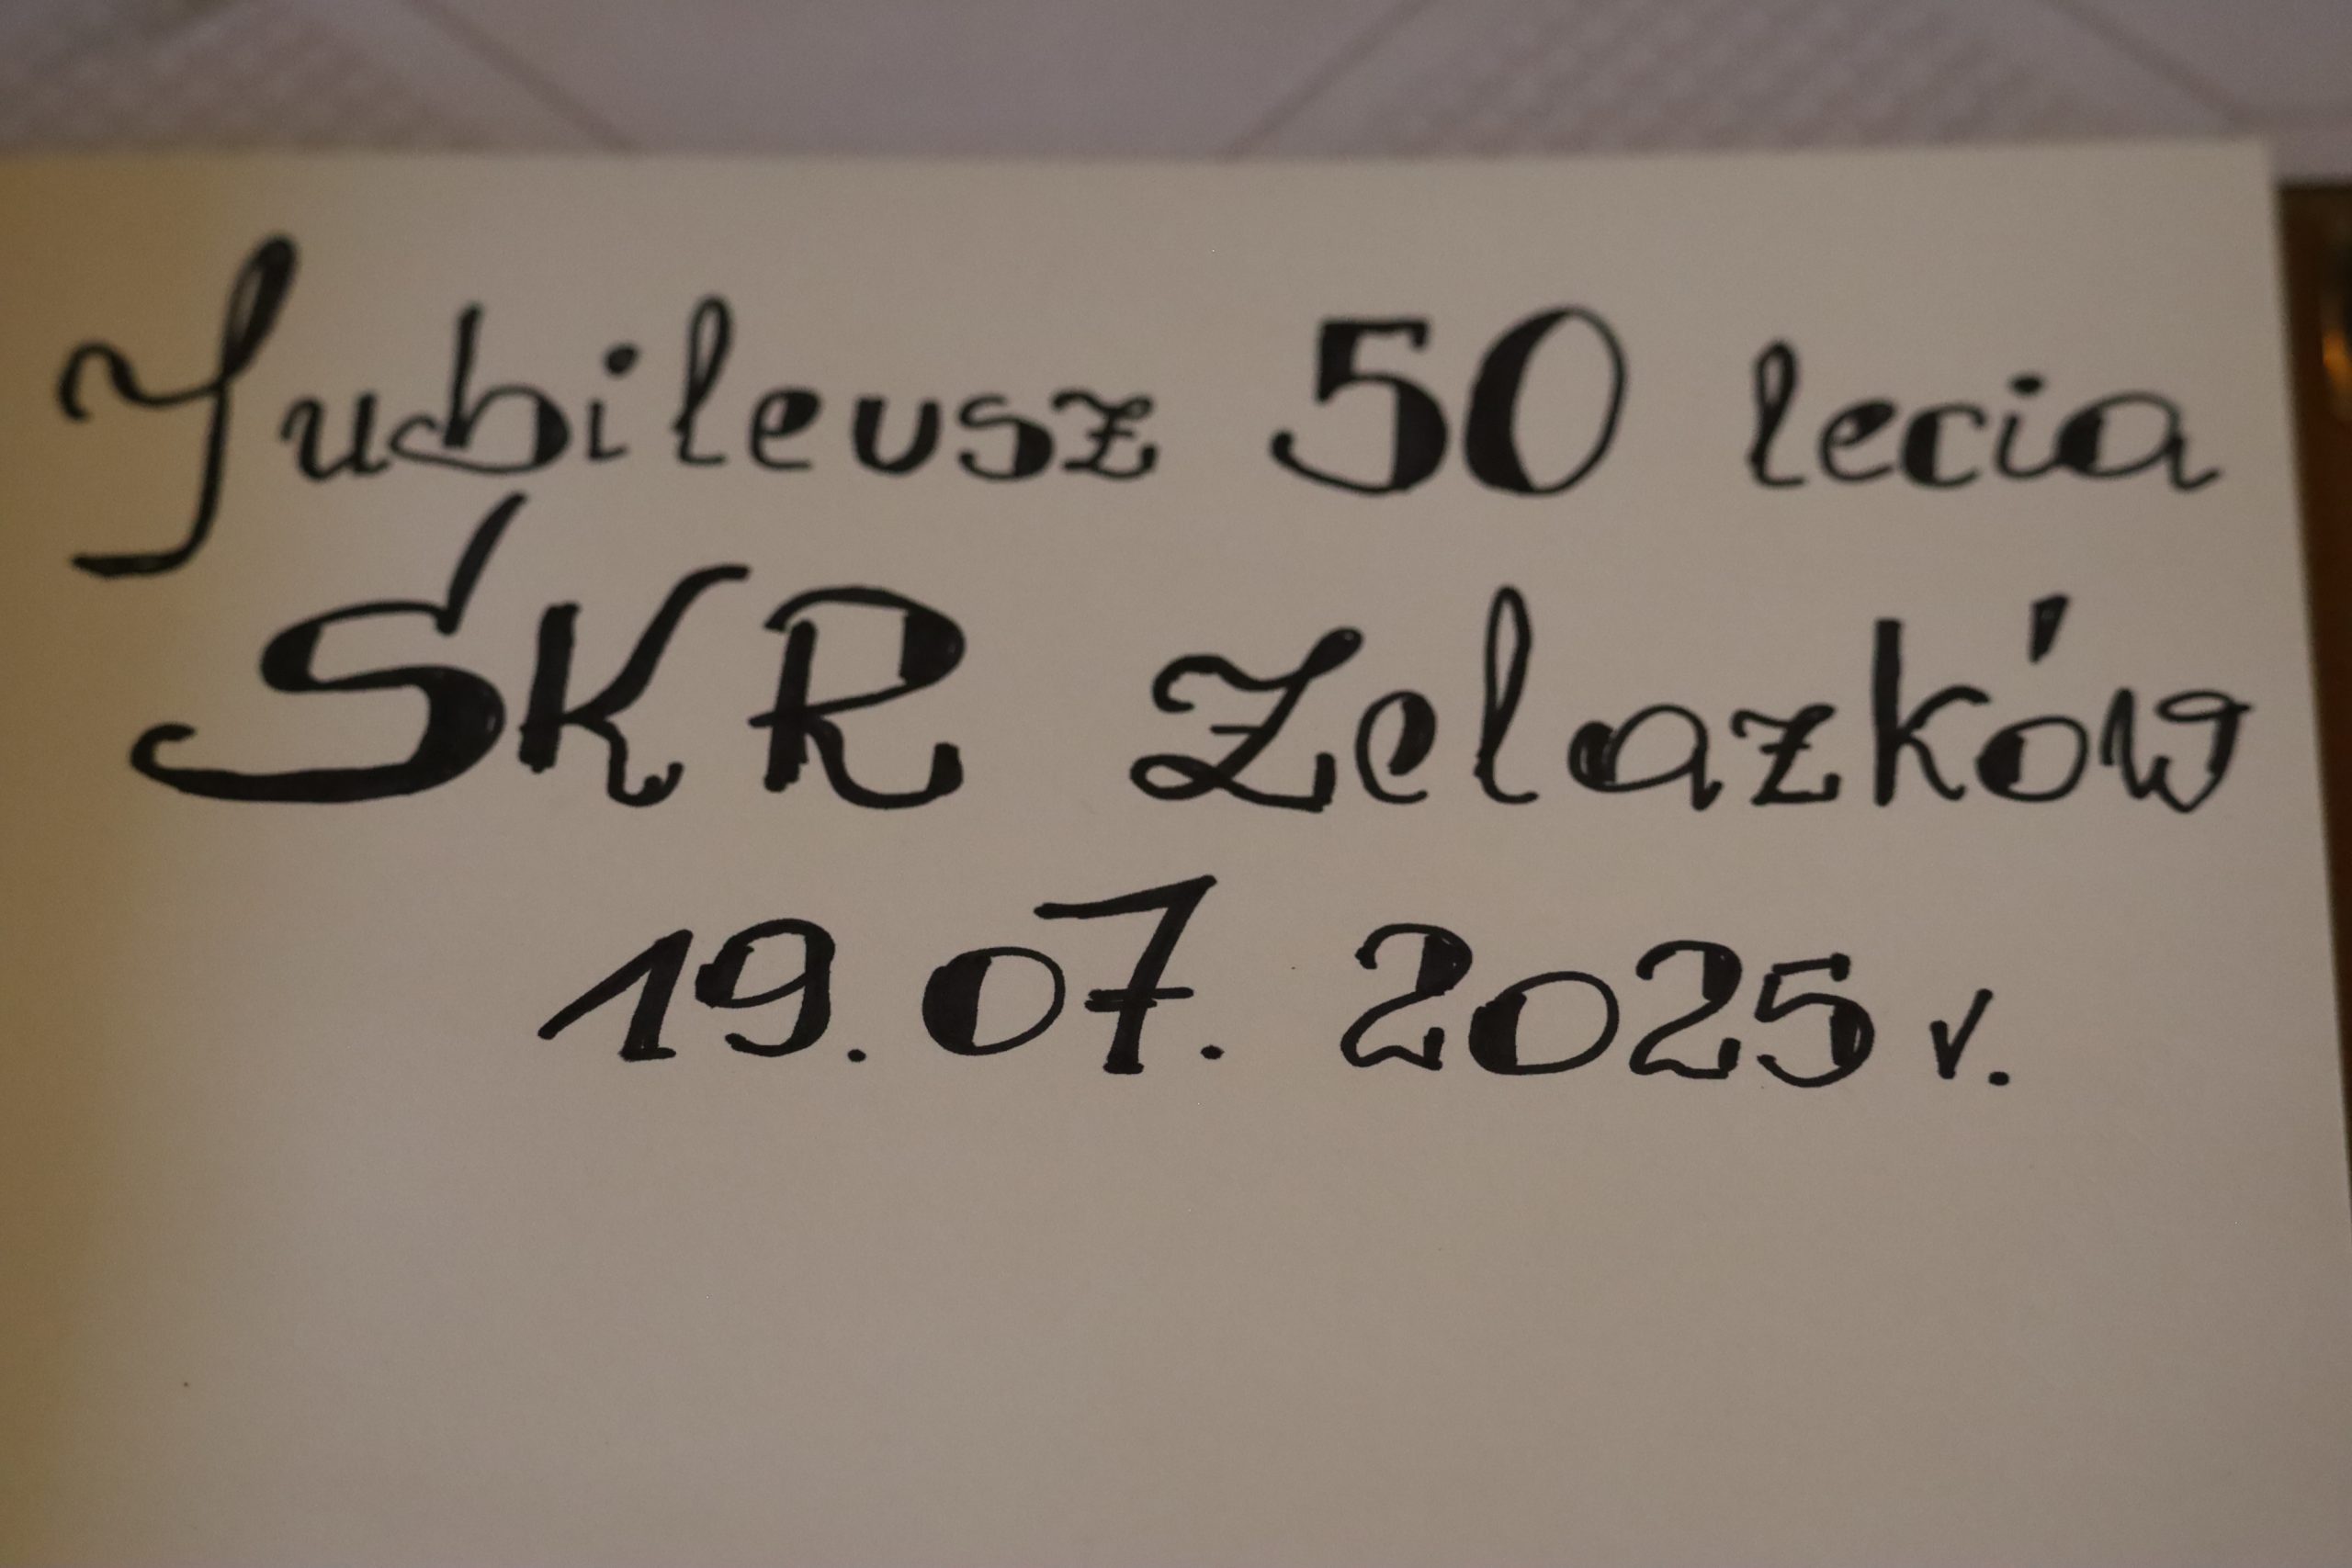 Jubileusz 50 lecia
SKR Żelazków
19.07.2025 r.